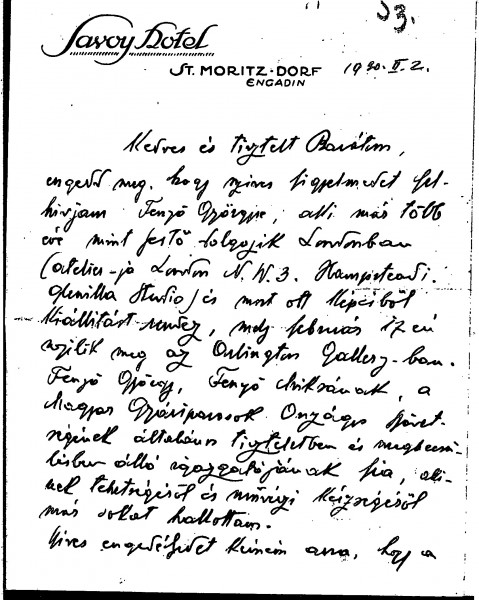 53.
Savoy Hotel
ST. MORITZ-DORF 1930. II. 2.
ENGADIN
Kedves és tisztelt Barátom,
engedd meg, hogy szives figyelmedet fel-
hivjam Fenyő Györgyre, aki már több
éve mint festő dolgozik Londonban
(atelier-ja London N.W.3. Hampstead.
Glenilla Studio) és most ott képeiből
kiállitást rendez, mely február 17 én
nyilik meg az Arlington Gallery-ban.
Fenyő György, Fenyő Miksának, a
Magyar Gyáriparosok Országos Szövet-
ségének általános tiszteletben és megbecsü-
lésben álló igazgatójának fia, aki-
nek tehetségéről és művészi készségéről
már sokat hallottam.
Szives engedelmedet kérném arra, hogy a